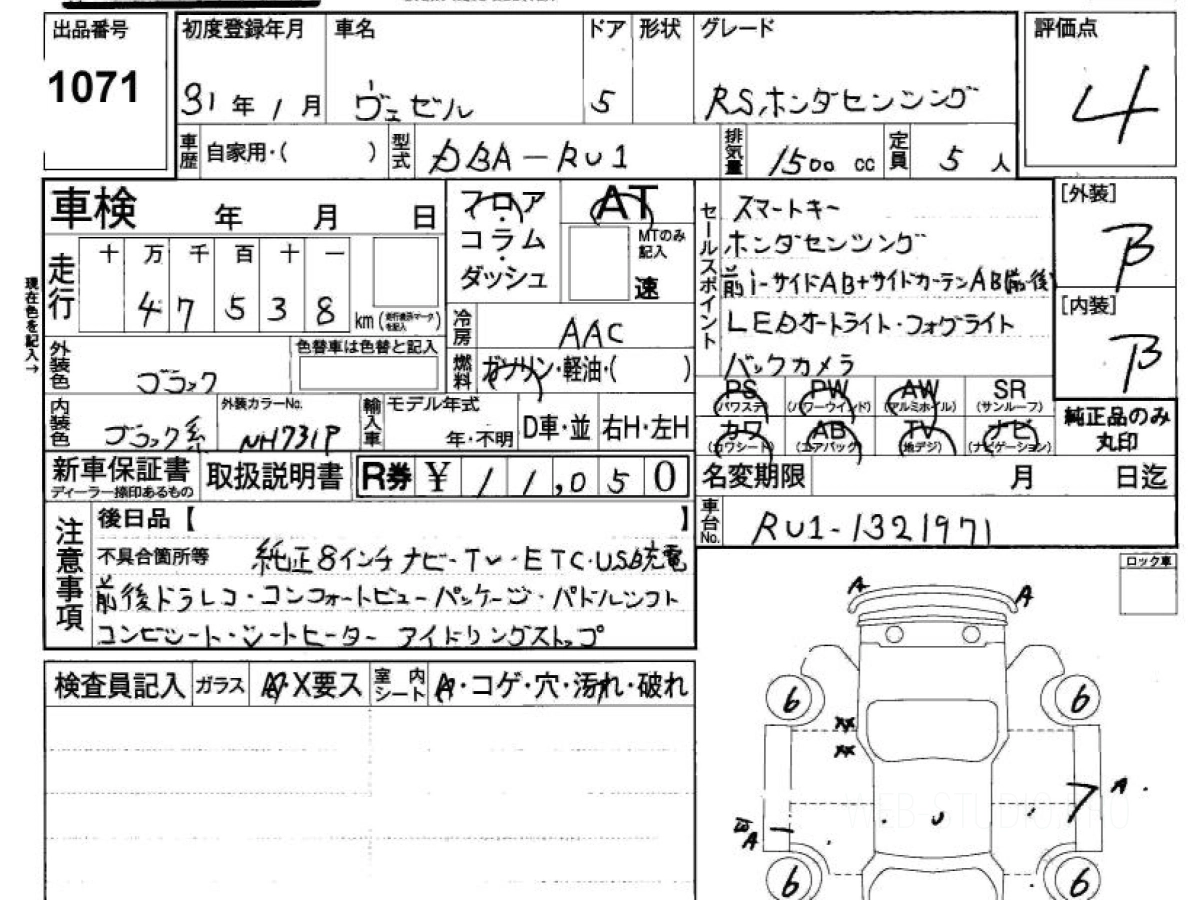 出品番号 初度登録年月 車名 ドア 形状 グレード 評価点
1071 31年1月 ヴェゼル 5 RS.ホンダセンシング 4
車歴 自家用・( ) 型式 DBA-RU1 排気量 1500 cc 定員 5 人
車検 年 月 日
フロア AT
コラム MTのみ記入
ダッシュ 速
セールスポイント
スマートキー
ホンダセンシング
前i-サイドAB+サイドカーテンAB(前・後)
LEDオートライト・フォグライト
バックカメラ
[外装]
B
[内装]
B
現在色を記入→
走行 十 万 千 百 十 一
4 7 5 3 8 km
冷房 AAC
燃料 ガソリン・軽油・( )
外装色 ブラック 色替車は色替と記入
内装色 ブラック系 外装カラーNo. NH731P 輸入車 モデル年式 年・不明 D車・並 右H・左H
PS (パワステ) PW (パワーウインド) AW (アルミホイル) SR (サンルーフ)
カワ (カワシート) AB (エアバック) TV (地デジ) ナビ (ナビゲーション)
純正品のみ丸印
新車保証書 ディーラー捺印あるもの 取扱説明書 R券 ¥ 11,050
名変期限 月 日迄
車台No. RU1-1321971
注意事項 後日品【 】
不具合箇所等 純正8インチナビ・TV・ETC・USB充電
前後ドラレコ・コンフォートビューパッケージ・パドルシフト
コンビシート・シートヒーター アイドリングストップ
ロック車
検査員記入 ガラス A・X要ス 室内シート A・コゲ・穴・汚れ・破れ
A A
6 6
XX
XX
A
7
A
6 6
WEB STUDIO.PRO